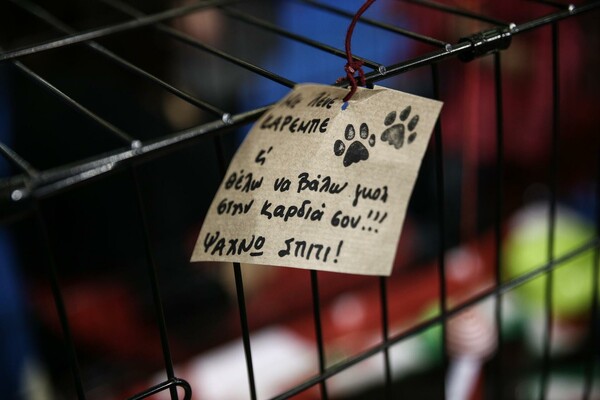 Με λένε
ΚΑΡΕΜΠΕ
κι
θέλω να βάλω γκολ
στην καρδιά σου!!!
ΨΑΧΝΩ ΣΠΙΤΙ!